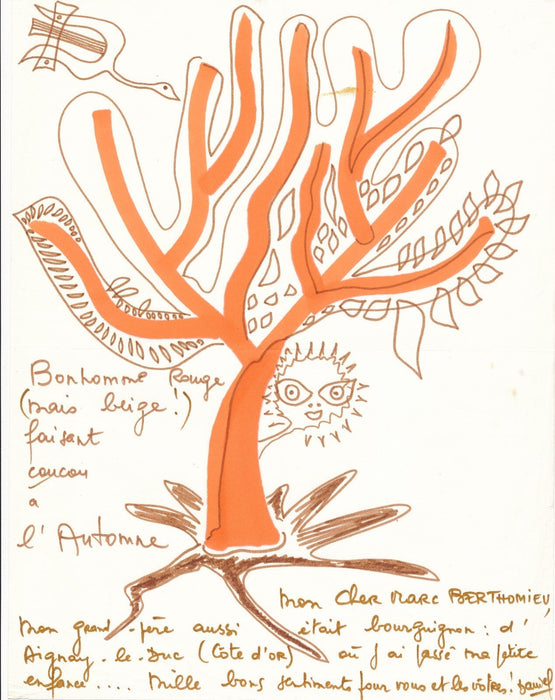 Bonhomme Rouge
(mais beige!)
faisant
coucou
a
l'Automne
Mon Cher Marc BERTHOMIEU,
Mon grand-père aussi était bourguignon: d'
Aignay-le-Duc (Côte d'OR) où j'ai passé ma petite
enfance.... Mille bons sentiments pour vous et les vôtres!